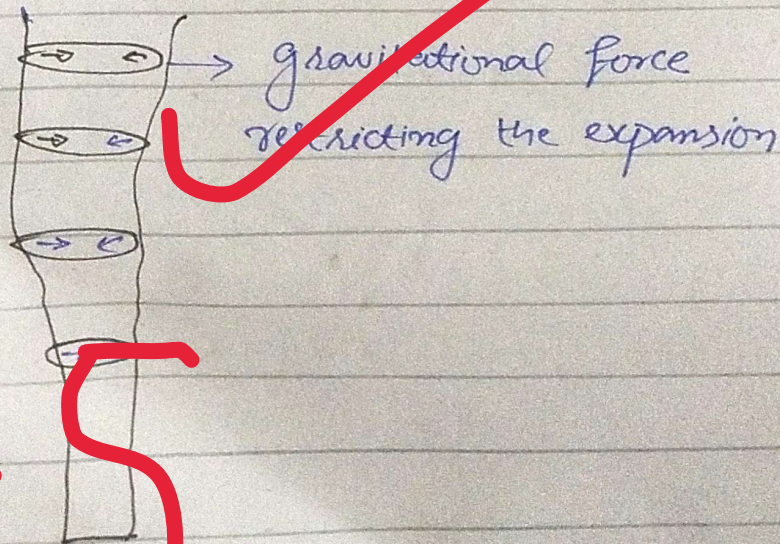 gravitational force
restricting the expansion